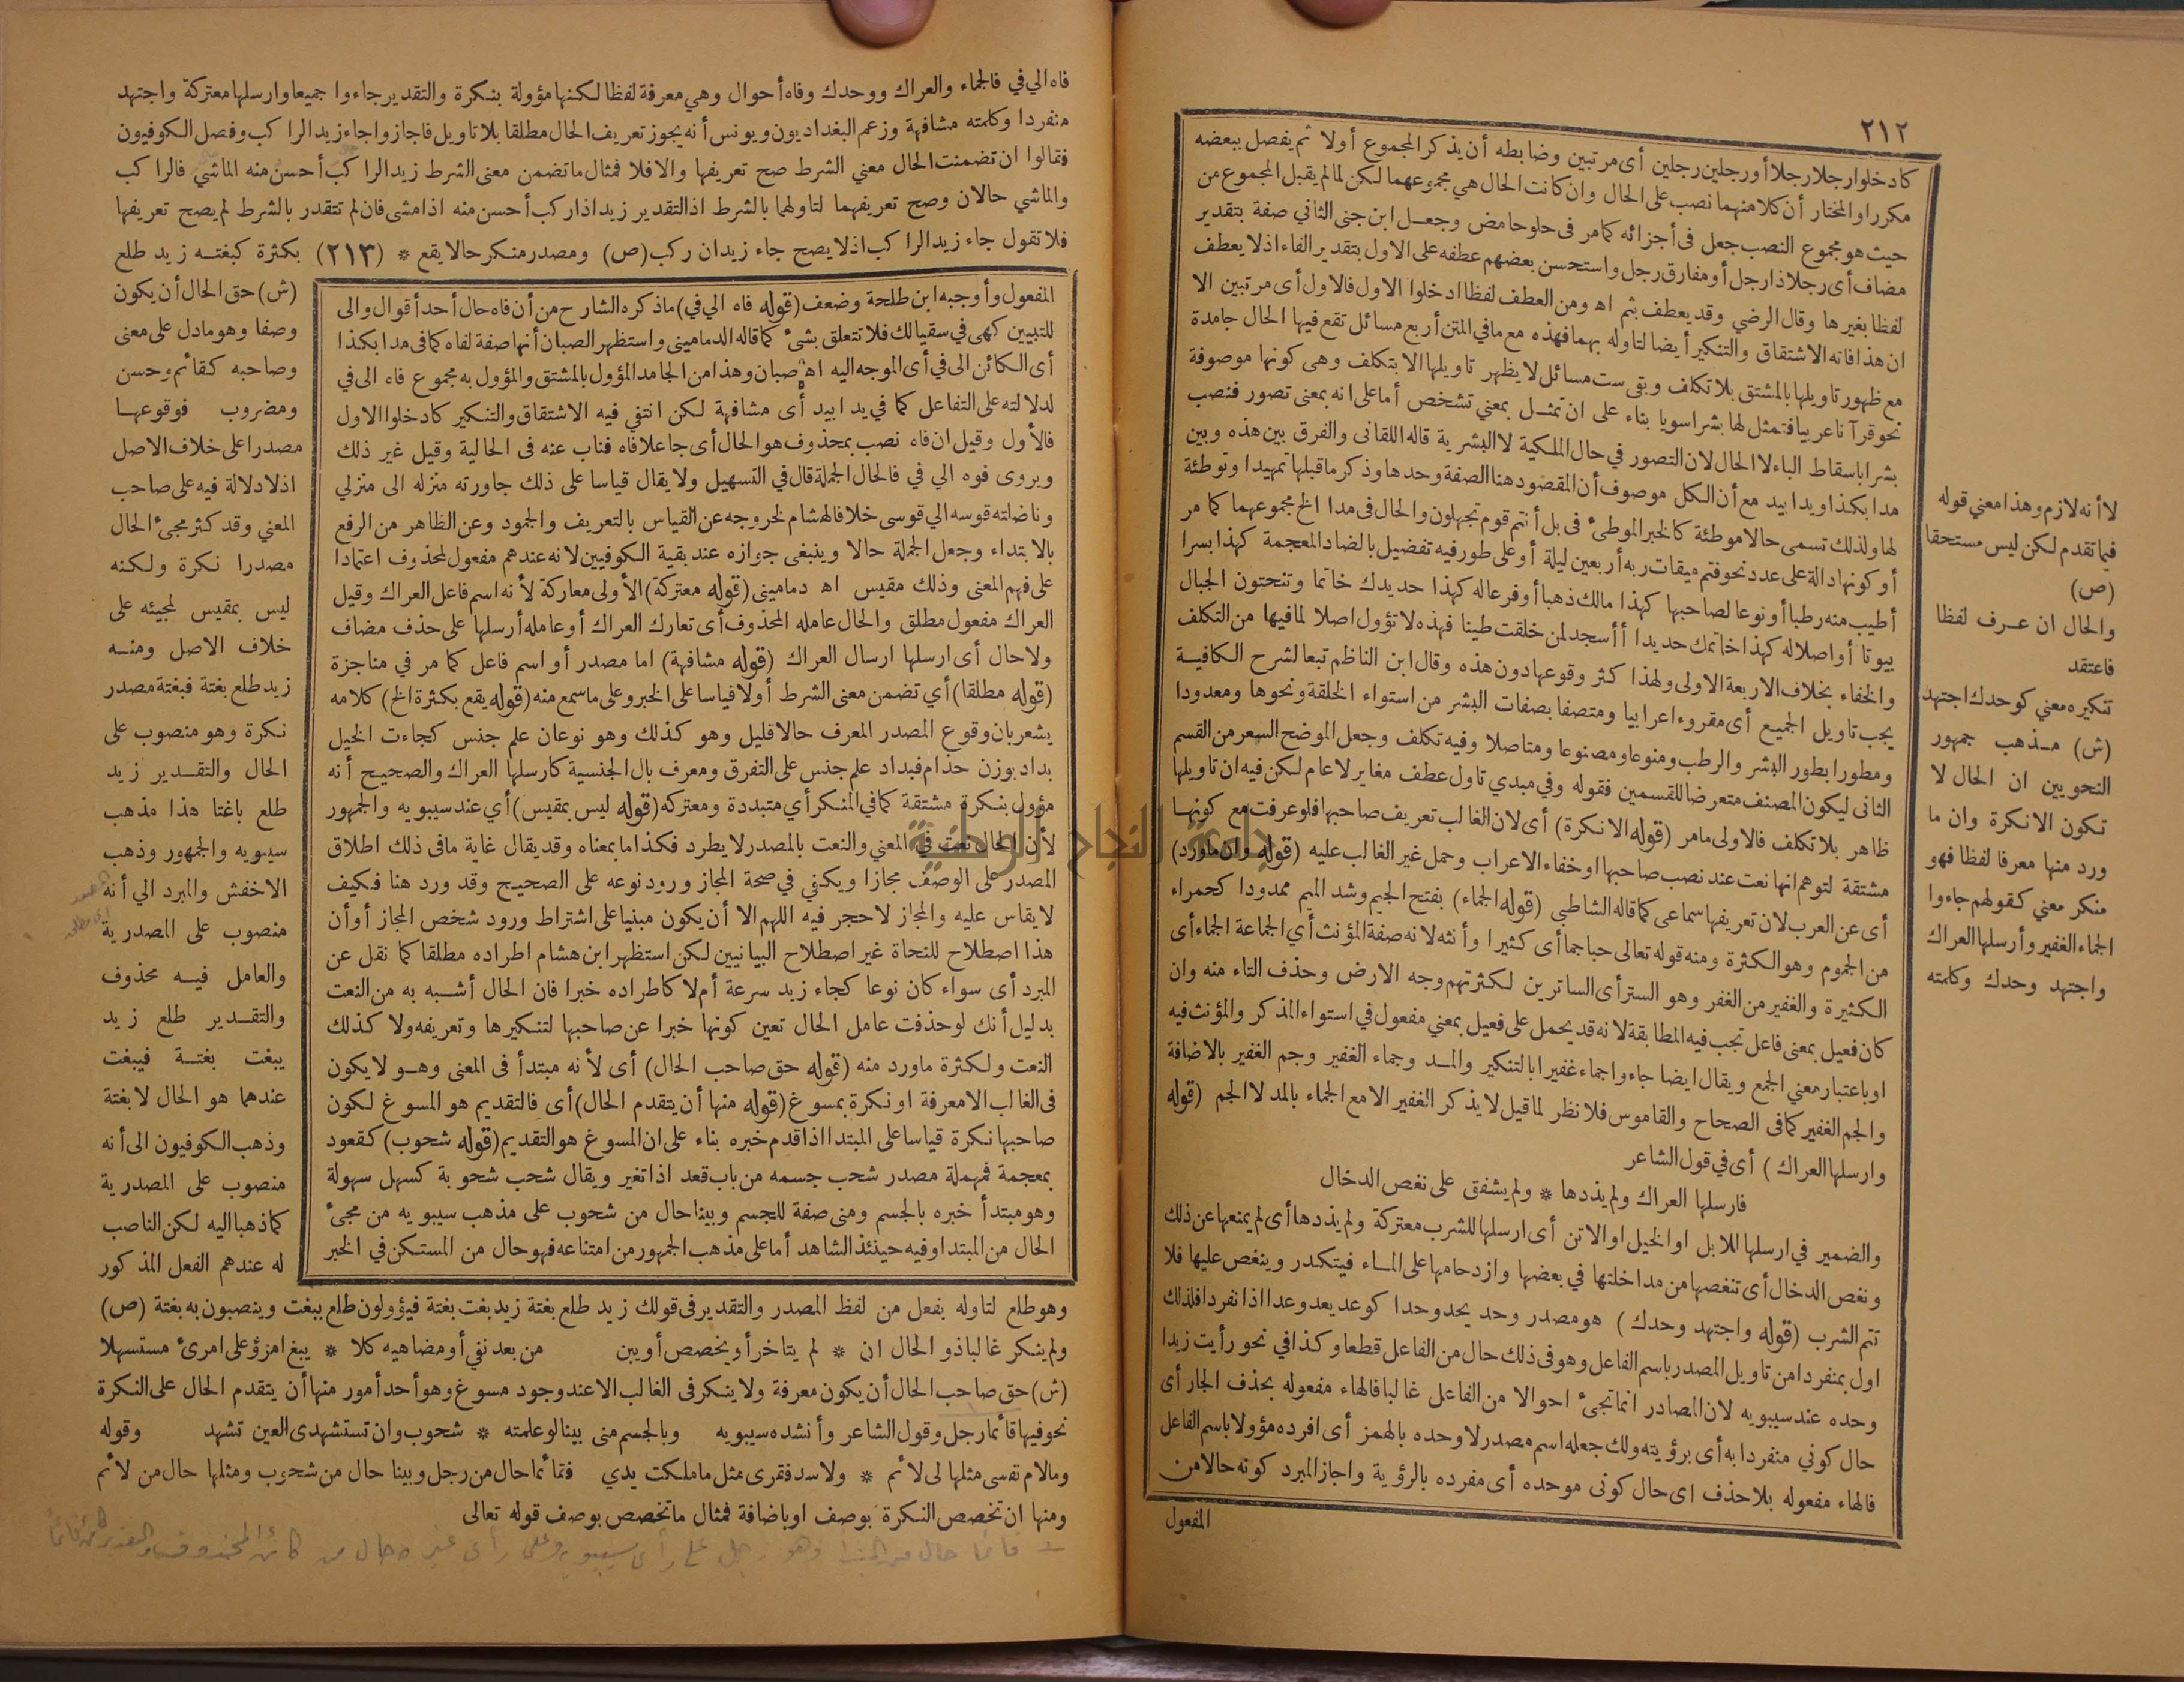 ٢١٢
كادخلوا رجلا رجلا أو رجلين رجلين أى مرتبين وضابطه أن يذكر المجموع أولا ثم يفصل ببعضه
مكررا والمختار أن كلا منهما نصب على الحال وان كانت الحال هي مجموعهما لكن لما لم يقبل المجموع من
حيث هو مجموع النصب جعل في أجزائه كما مر في حلو حامض وجعل ابن جنى الثاني صفة بتقدير
مضاف أى رجلا ذا رجل أو مفارق رجل واستحسن بعضهم عطفه على الاول بتقدير الفاء اذ لا يعطف
لفظا بغيرها وقال الرضي وقد يعطف بثم اه ومن العطف لفظا ادخلوا الاول فالاول أى مرتبين الا
ان هذا فاته الاشتقاق والتنكير أيضا لتأوله بهما فهذه مع ما في المتن أربع مسائل تقع فيها الحال جامدة
مع ظهور تاويلها بالمشتق بلا تكلف وبقى ست مسائل لا يظهر تاويلها الا بتكلف وهى كونها موصوفة
نحو قرآنا عربيا فتمثل لها بشرا سويا بناء على ان تمثل بمعني تشخص أما على انه بمعنى تصور فنصب
بشرا باسقاط الباء لا الحال لان التصور في حال الملكية لا البشرية قاله اللقانى والفرق بين هذه وبين
مدا بكذا ويدا بيد مع أن الكل موصوف أن المقصود هنا الصفة وحدها وذكر ما قبلها تمهيدا وتوطئة
لها ولذلك تسمى حالا موطئة كالخبر الموطئ فى بل أنتم قوم تجهلون والحال فى مدا الخ مجموعهما كما مر
أو كونها دالة على عدد نحو فتم ميقات ربه أربعين ليلة أو على طور فيه تفضيل بالضاد المعجمة كهذا بسرا
أطيب منه رطبا أو نوعا لصاحبها كهذا مالك ذهبا أو فرعا له كهذا حديدك خاتما وتنحتون الجبال
بيوتا أو اصلا له كهذا خاتمك حديدا أأسجد لمن خلقت طينا فهذه لا تؤول اصلا لما فيها من التكلف
والخفاء بخلاف الاربعة الاولى ولهذا كثر وقوعها دون هذه وقال ابن الناظم تبعا لشرح الكافية
يجب تاويل الجميع أى مقروءا عرابيا ومتصفا بصفات البشر من استواء الخلقة ونحوها ومعدودا
ومطورا بطور البشر والرطب ومنوعا ومصنوعا ومتاصلا وفيه تكلف وجعل الموضح السعر من القسم
الثانى ليكون المصنف متعرضا للقسمين فقوله وفي مبدي تاول عطف مغاير لا عام لكن فيه ان تاويلها
ظاهر بلا تكلف فالاولى ما مر (قوله الا نكرة) أى لان الغالب تعريف صاحبها فلو عرفت مع كونها
مشتقة لتوهم انها نعت عند نصب صاحبها او خفاء الاعراب وحمل غير الغالب عليه (قوله وان ماورد)
أى عن العرب لان تعريفها سماعى كما قاله الشاطبي (قوله الجماء) بفتح الجيم وشد الميم ممدودا كحمراء
من الجموم وهو الكثرة ومنه قوله تعالى حبا جما أى كثيرا وأنثه لانه صفة المؤنث أي الجماعة الجماء أى
الكثيرة والغفير من الغفر وهو الستر أى الساترين لكثرتهم وجه الارض وحذف التاء منه وان
كان فعيل بمعنى فاعل تجب فيه المطابقة لانه قد يحمل على فعيل بمعني مفعول في استواء المذكر والمؤنث فيه
او باعتبار معني الجمع ويقال ايضا جاءوا جماء غفيرا بالتنكير والمد وجماء الغفير وجم الغفير بالاضافة
والجم الغفير كما فى الصحاح والقاموس فلا نظر لما قيل لا يذكر الغفير الا مع الجماء بالمد لا الجم (قوله
وارسلها العراك) أى في قول الشاعر
فارسلها العراك ولم يذدها * ولم يشفق على نغص الدخال
والضمير في ارسلها للابل او الخيل او الاتن أى ارسلها للشرب معتركة ولم يذدها أى لم يمنعها عن ذلك
ونغص الدخال أى تنغصها من مداخلتها في بعضها وازدحامها على الماء فيتكدر وينغص عليها فلا
تتم الشرب (قوله واجتهد وحدك) هو مصدر وحد يحد وحدا كوعد يعد وعدا اذا انفرد فلذلك
اول بمنفردا من تاويل المصدر باسم الفاعل وهو فى ذلك حال من الفاعل قطعا وكذا في نحو رأيت زيدا
وحده عند سيبويه لان المصادر انما تجئ احوالا من الفاعل غالبا فالهاء مفعوله بحذف الجار أى
حال كوني منفردا به أى برؤيته ولك جعله اسم مصدر لاوحده بالهمز أى افرده مؤولا باسم الفاعل
فالهاء مفعوله بلا حذف اى حال كونى موحده أى مفرده بالرؤية واجاز المبرد كونه حالا من
المفعول
لا أنه لازم وهذا معني قوله
فيما تقدم لكن ليس مستحقا
(ص)
والحال ان عرف لفظا
فاعتقد
تنكيره معني كوحدك اجتهد
(ش) مذهب جمهور
النحويين ان الحال لا
تكون الا نكرة وان ما
ورد منها معرفا لفظا فهو
منكر معني كقولهم جاءوا
الجماء الغفير وأرسلها العراك
واجتهد وحدك وكلمته
فاه الي في فالجماء والعراك ووحدك وفاه أحوال وهي معرفة لفظا لكنها مؤولة بنكرة والتقدير جاءوا جميعا وارسلها معتركة واجتهد
منفردا وكلمته مشافهة وزعم البغداديون ويونس أنه يجوز تعريف الحال مطلقا بلا تاويل فاجازوا جاء زيد الراكب وفصل الكوفيون
فقالوا ان تضمنت الحال معني الشرط صح تعريفها والا فلا فمثال ما تضمن معنى الشرط زيد الراكب أحسن منه الماشي فالراكب
والماشي حالان وصح تعريفهما لتاولهما بالشرط اذ التقدير زيد اذا ركب أحسن منه اذا مشى فان لم تتقدر بالشرط لم يصح تعريفها
فلا تقول جاء زيد الراكب اذ لا يصح جاء زيد ان ركب (ص) ومصدر منكر حالا يقع * (٢١٣) بكثرة كبغتة زيد طلع
(ش) حق الحال أن يكون
وصفا وهو مادل على معنى
وصاحبه كقائم وحسن
ومضروب فوقوعها
مصدرا على خلاف الاصل
اذ لا دلالة فيه على صاحب
المعني وقد كثر مجئ الحال
مصدرا نكرة ولكنه
ليس بمقيس لمجيئه على
خلاف الاصل ومنه
زيد طلع بغتة فبغتة مصدر
نكرة وهو منصوب على
الحال والتقدير زيد
طلع باغتا هذا مذهب
سيبويه والجمهور وذهب
الاخفش والمبرد الي أنه
منصوب على المصدرية
والعامل فيه محذوف
والتقدير طلع زيد
يبغت بغتة فيبغت
عندهما هو الحال لا بغتة
وذهب الكوفيون الى أنه
منصوب على المصدرية
كما ذهبا اليه لكن الناصب
له عندهم الفعل المذكور
المفعول وأوجبه ابن طلحة وضعف (قوله فاه الي في) ما ذكره الشارح من أن فاه حال أحد أقوال والى
للتبيين كهى في سقيا لك فلا تتعلق بشئ كما قاله الدمامينى واستظهر الصبان أنها صفة لفاه كما فى مدا بكذا
أى الكائن الى في أى الموجه اليه اه صبان وهذا من الجامد المؤول بالمشتق والمؤول به مجموع فاه الى في
لدلالته على التفاعل كما في يدا بيد أى مشافهة لكن انتفي فيه الاشتقاق والتنكير كادخلوا الاول
فالأول وقيل ان فاه نصب بمحذوف هو الحال أى جاعلا فاه فناب عنه فى الحالية وقيل غير ذلك
ويروى فوه الي في فالحال الجملة قال في التسهيل ولا يقال قياسا على ذلك جاورته منزله الى منزلي
وناضلته قوسه الي قوسى خلافا لهشام لخروجه عن القياس بالتعريف والجمود وعن الظاهر من الرفع
بالابتداء وجعل الجملة حالا وينبغى جوازه عند بقية الكوفيين لانه عندهم مفعول لمحذوف اعتمادا
على فهم المعنى وذلك مقيس اه دمامينى (قوله معتركة) الأولى معاركة لأنه اسم فاعل العراك وقيل
العراك مفعول مطلق والحال عامله المحذوف أى تعارك العراك أو عامله أرسلها على حذف مضاف
ولا حال أى ارسلها ارسال العراك (قوله مشافهة) اما مصدر أو اسم فاعل كما مر في مناجزة
(قوله مطلقا) أي تضمن معنى الشرط أولا قياسا على الخبر وعلى ما سمع منه (قوله يقع بكثرة الخ) كلامه
يشعر بان وقوع المصدر المعرف حالا قليل وهو كذلك وهو نوعان علم جنس كجاءت الخيل
بداد بوزن حذام فبداد علم جنس على التفرق ومعرف بال الجنسية كارسلها العراك والصحيح أنه
مؤول بنكرة مشتقة كما في المنكر أي متبددة ومعتركة (قوله ليس بمقيس) أي عند سيبويه والجمهور
لأن الحال نعت في المعني والنعت بالمصدر لا يطرد فكذا ما بمعناه وقد يقال غاية ما فى ذلك اطلاق
المصدر على الوصف مجازا ويكفي في صحة المجاز ورود نوعه على الصحيح وقد ورد هنا فكيف
لا يقاس عليه والمجاز لا حجر فيه اللهم الا أن يكون مبنيا على اشتراط ورود شخص المجاز أو أن
هذا اصطلاح للنحاة غير اصطلاح البيانيين لكن استظهر ابن هشام اطراده مطلقا كما نقل عن
المبرد أى سواء كان نوعا كجاء زيد سرعة أم لا كاطراده خبرا فان الحال أشبه به من النعت
بدليل أنك لو حذفت عامل الحال تعين كونها خبرا عن صاحبها لتنكيرها وتعريفه ولا كذلك
النعت ولكثرة ماورد منه (قوله حق صاحب الحال) أى لأنه مبتدأ فى المعنى وهو لا يكون
فى الغالب الا معرفة او نكرة بمسوغ (قوله منها أن يتقدم الحال) أى فالتقديم هو المسوغ لكون
صاحبها نكرة قياسا على المبتدا اذا قدم خبره بناء على ان المسوغ هو التقديم (قوله شحوب) كقعود
بمعجمة فمهملة مصدر شحب جسمه من باب قعد اذا تغير ويقال شحب شحوبة كسهل سهولة
وهو مبتدأ خبره بالجسم ومنى صفة للجسم وبينا حال من شحوب على مذهب سيبويه من مجئ
الحال من المبتدا وفيه حينئذ الشاهد أما على مذهب الجمهور من امتناعه فهو حال من المستكن في الخبر
وهو طلع لتاوله بفعل من لفظ المصدر والتقدير فى قولك زيد طلع بغتة زيد بغت بغتة فيؤولون طلع ببغت وينصبون به بغتة (ص)
ولم ينكر غالبا ذو الحال ان * لم يتاخر أو يخصص أو يبن من بعد نفي أو مضاهيه كلا * يبغ امرؤ على امرئ مستسهلا
(ش) حق صاحب الحال أن يكون معرفة ولا ينكر فى الغالب الا عند وجود مسوغ وهو أحد أمور منها أن يتقدم الحال على النكرة
نحو فيها قائما رجل وقول الشاعر وأنشده سيبويه وبالجسم منى بينا لو علمته * شحوب وان تستشهدى العين تشهد وقوله
ومالام نفسى مثلها لى لائم * ولا سد فقرى مثل ما ملكت يدي فقائما حال من رجل وبينا حال من شحوب ومثلها حال من لائم
ومنها ان تخصص النكرة بوصف او باضافة فمثال ما تخصص بوصف قوله تعالى
قائما حال من المبتدا وهو رجل على رأى سيبويه وعلى رأى غيره حال من
جامعة النجاح الوطنية